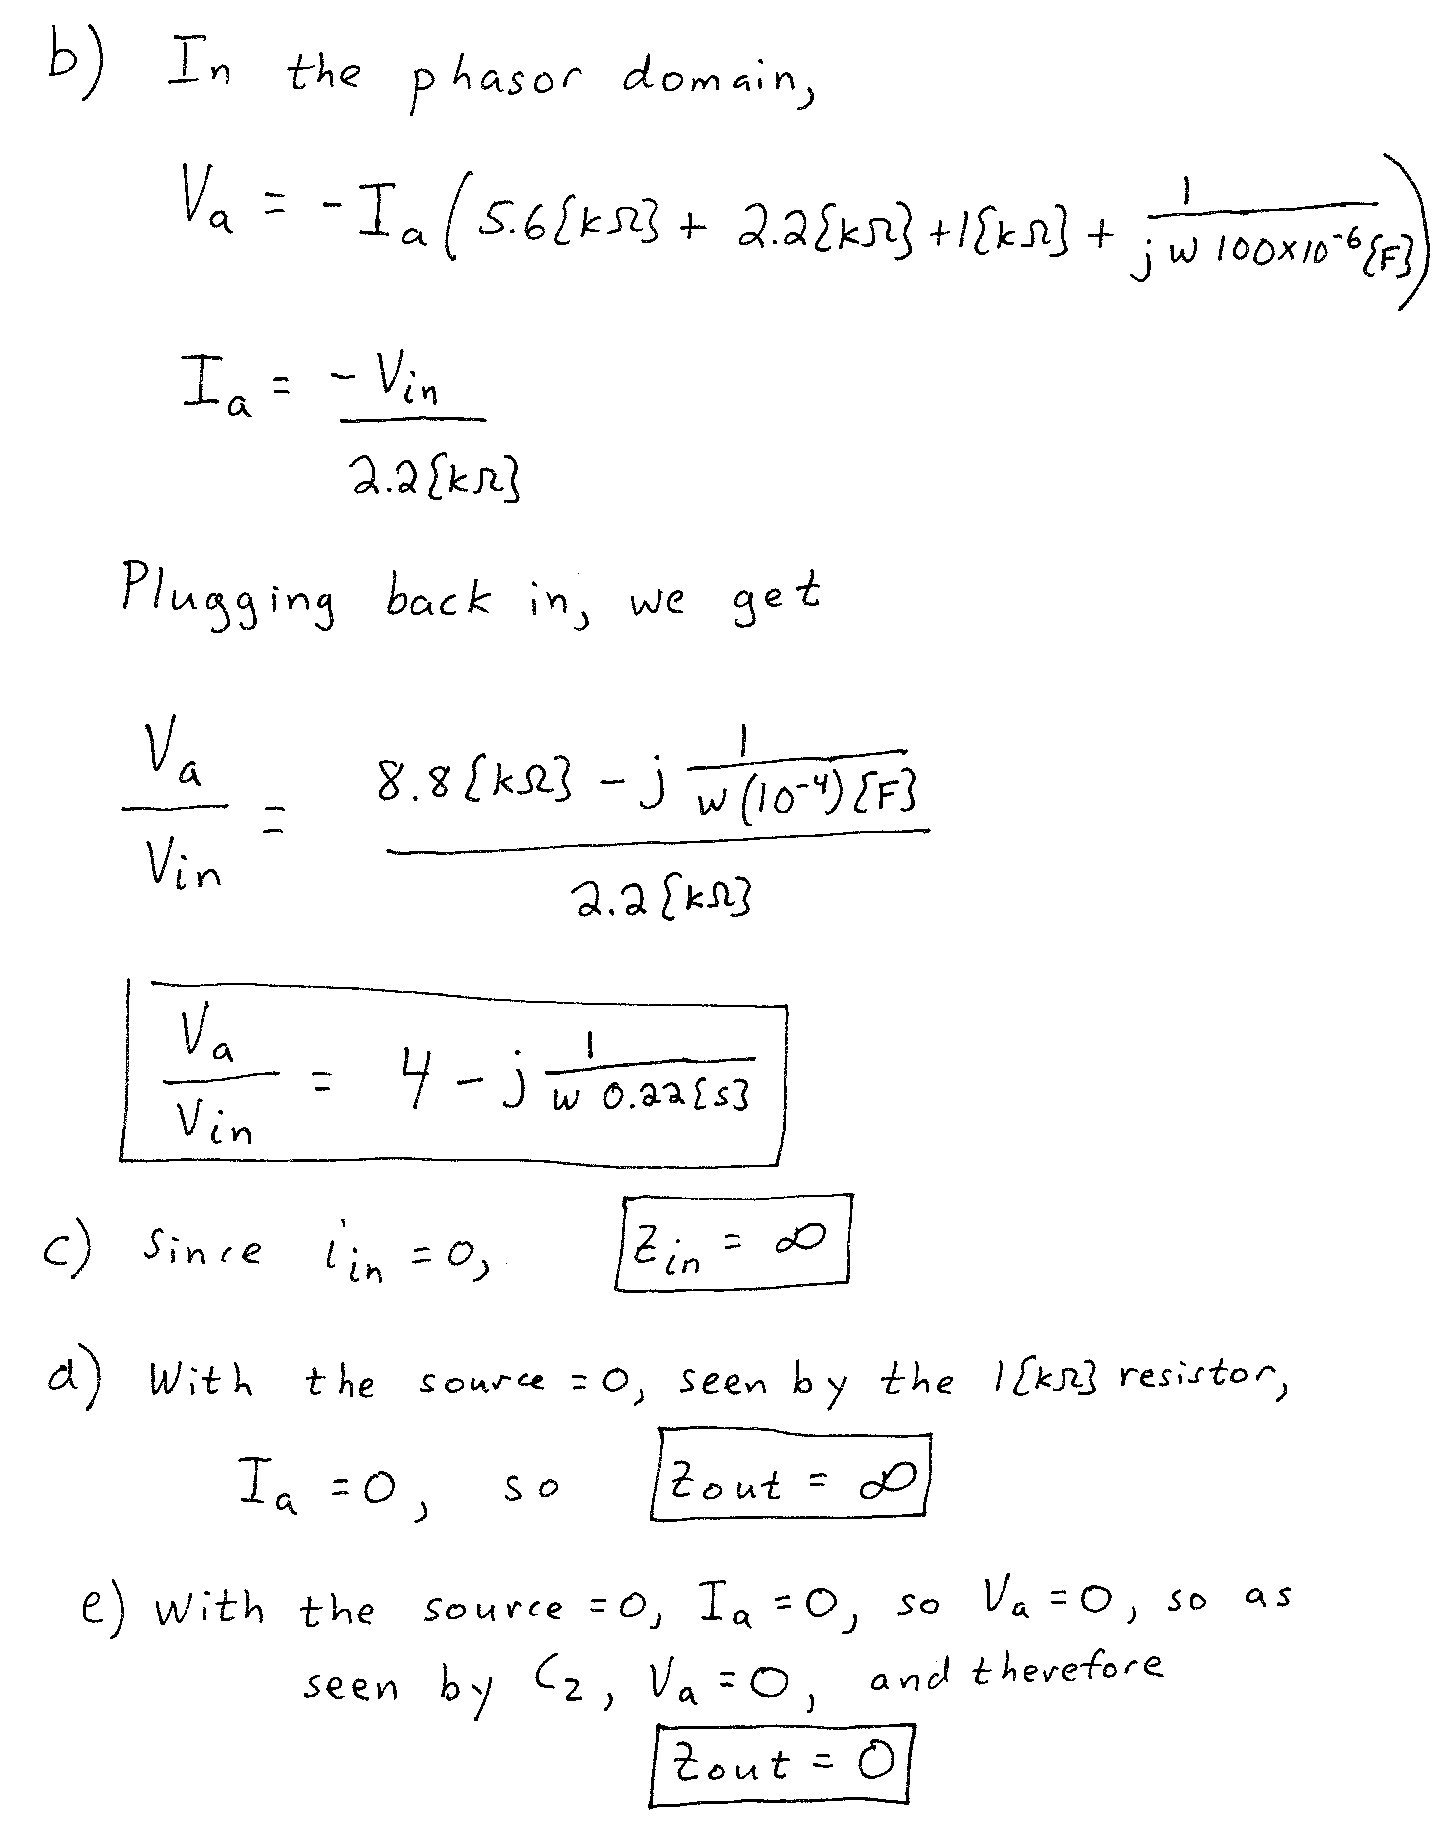 b) In the phasor domain,
Va = -Ia ( 5.6{kΩ} + 2.2{kΩ} + 1{kΩ} + 1 / (jw 100×10⁻⁶{F}) )
Ia = -Vin / 2.2{kΩ}
Plugging back in, we get
Va / Vin = (8.8{kΩ} - j 1 / (w(10⁻⁴){F})) / 2.2{kΩ}
Va / Vin = 4 - j 1 / (w 0.22{s})
c) Since iin = 0, Zin = ∞
d) With the source = 0, seen by the 1{kΩ} resistor,
Ia = 0, so Zout = ∞
e) With the source = 0, Ia = 0, so Va = 0, so as
seen by C2, Va = 0, and therefore
Zout = 0